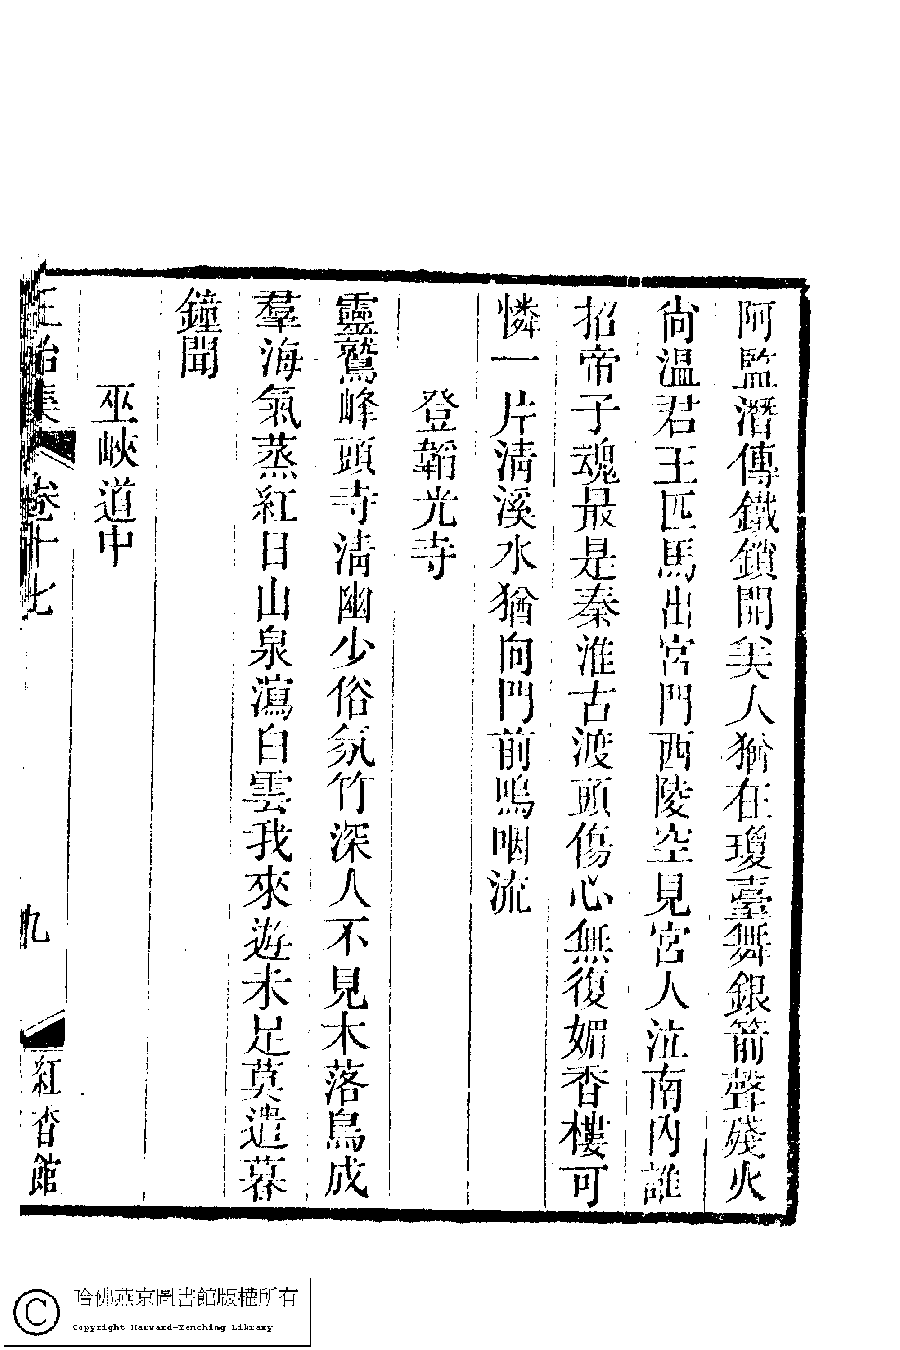 阿監潛傳鐵鎖開美人猶在瓊臺舞銀箭聲殘火
尙溫君王匹馬出宮門西陵空見宮人泣南內誰
招帝子魂最是秦淮古渡頭傷心無復媚香樓可
憐一片淸溪水猶向門前嗚咽流
登韜光寺
靈鷲峰頭寺淸幽少俗氛竹深人不見木落鳥成
羣海氣蒸紅日山泉瀉白雲我來遊未足莫遣暮
鐘聞
巫峽道中
集 卷十七 九 紅杏館
哈佛燕京圖書館版權所有
Copyright Harvard-Yenching Library